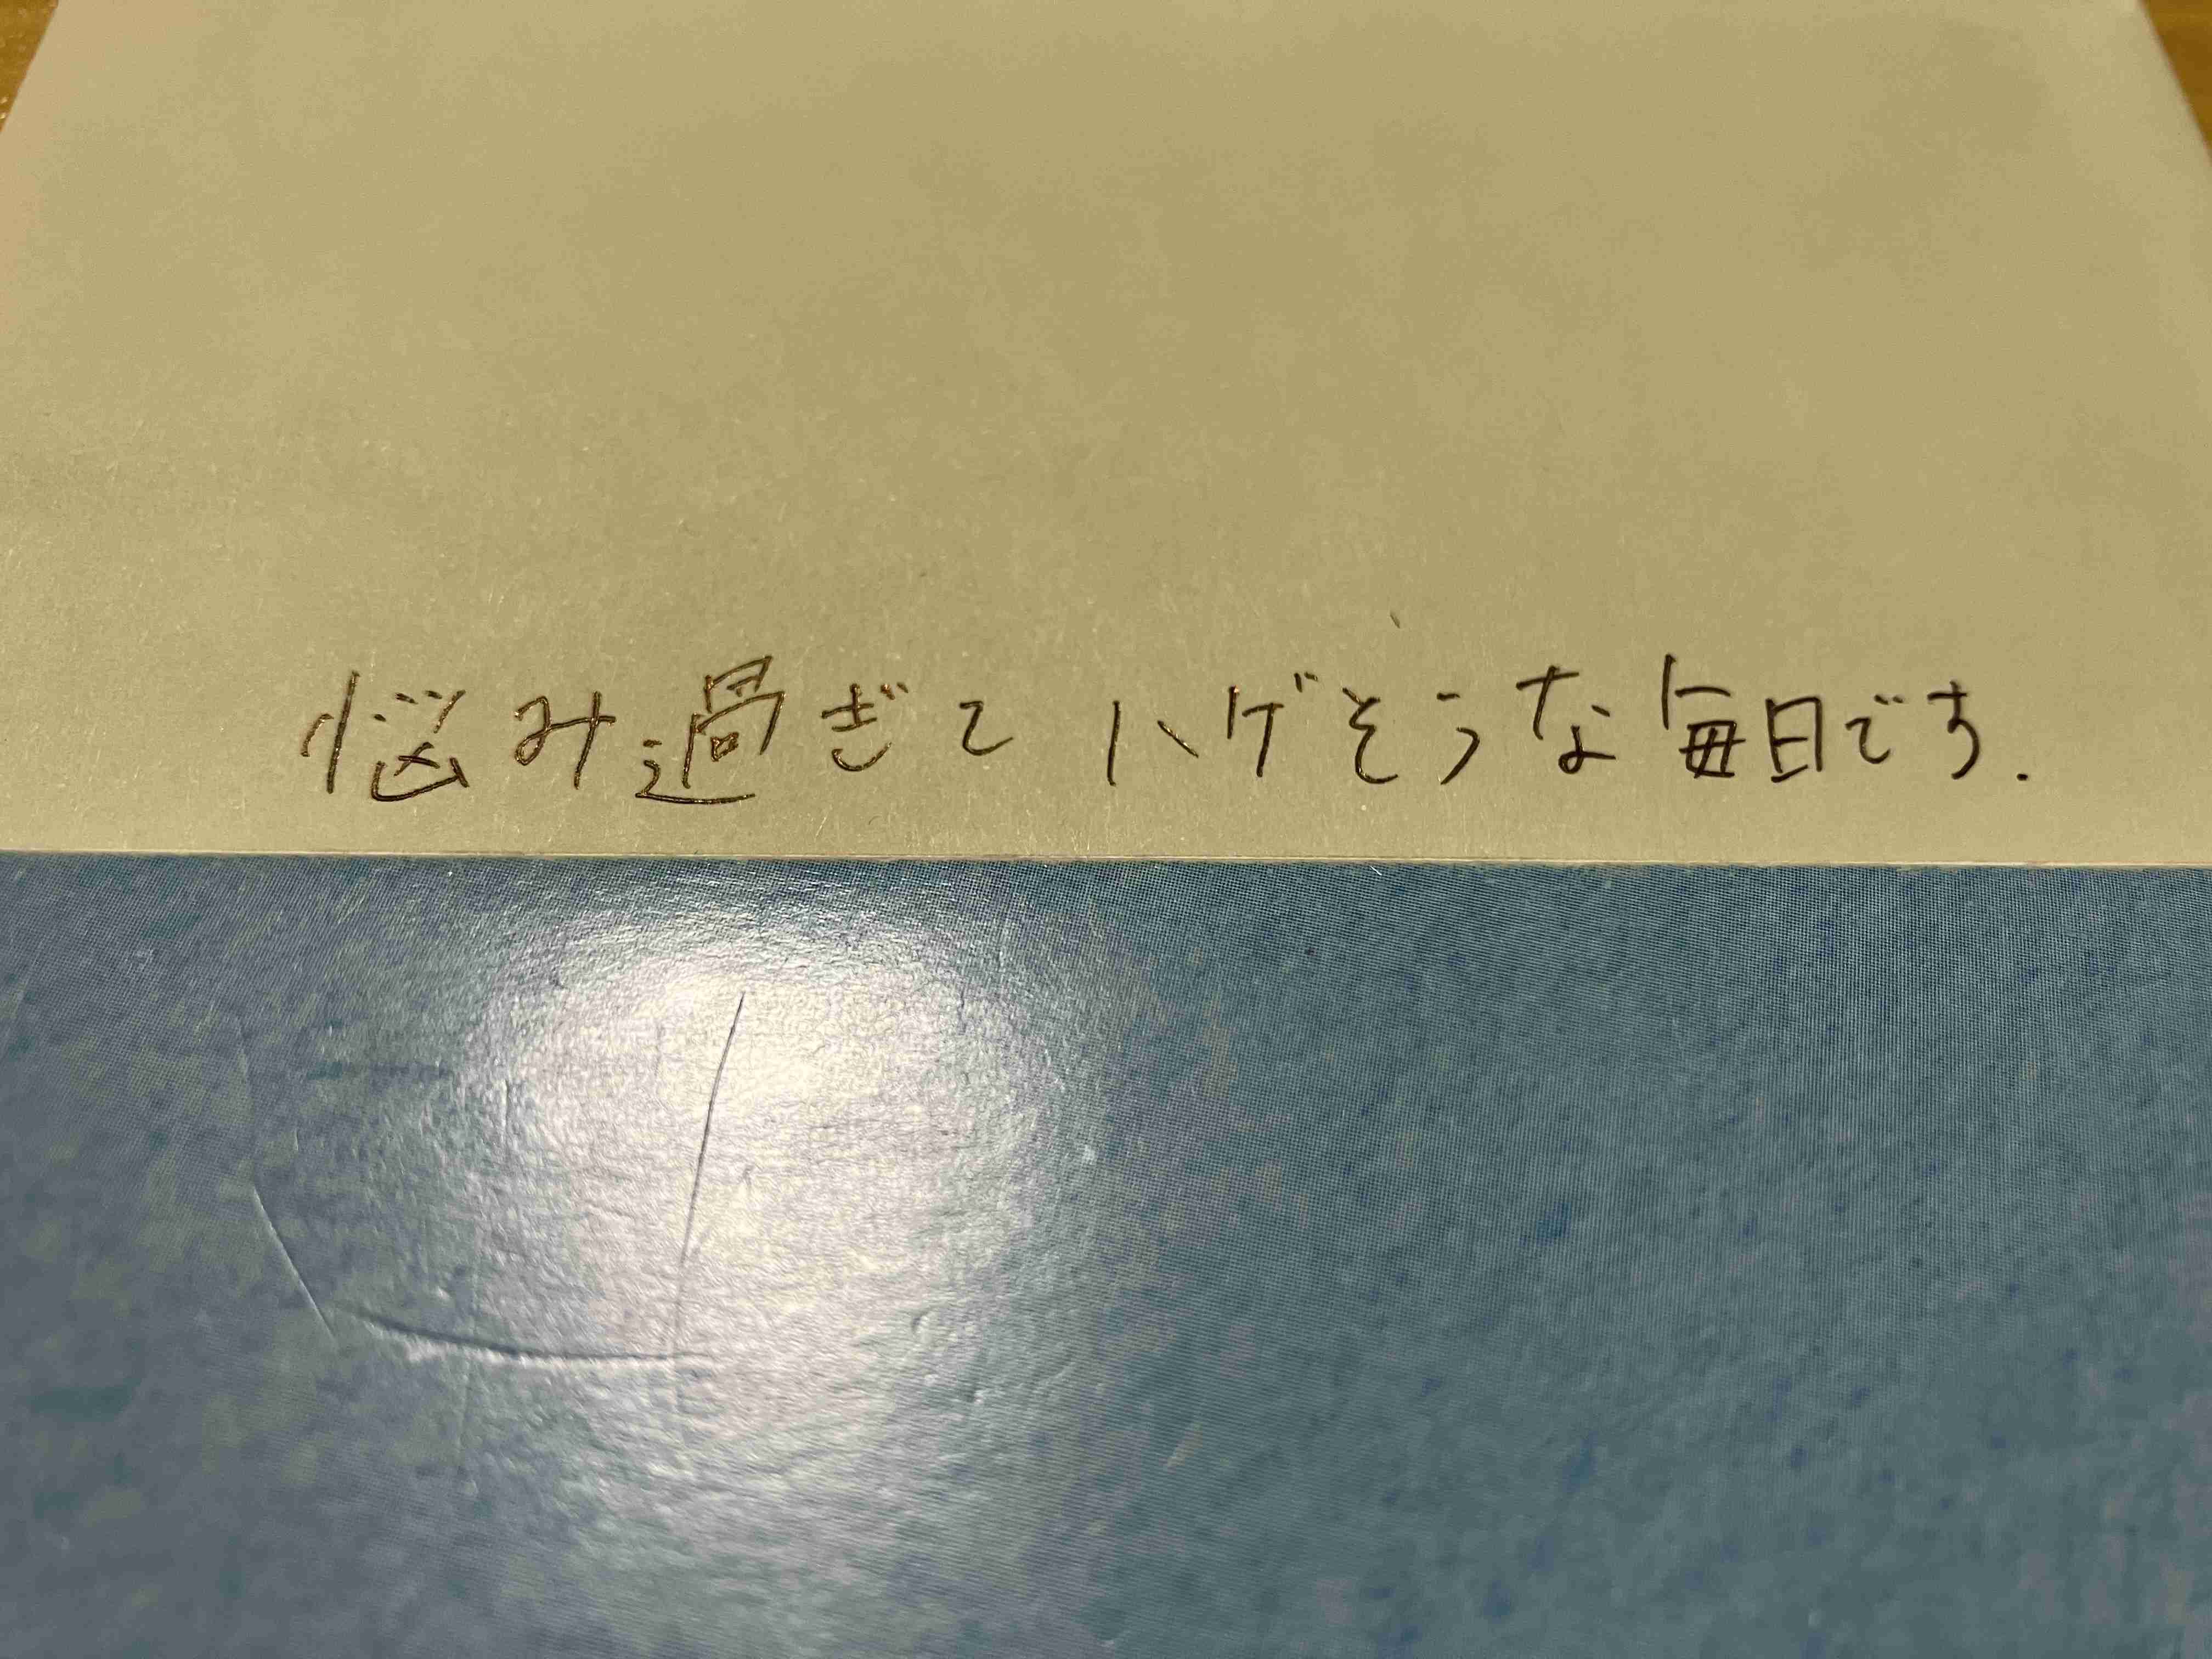 悩み過ぎてハゲそうな毎日です.